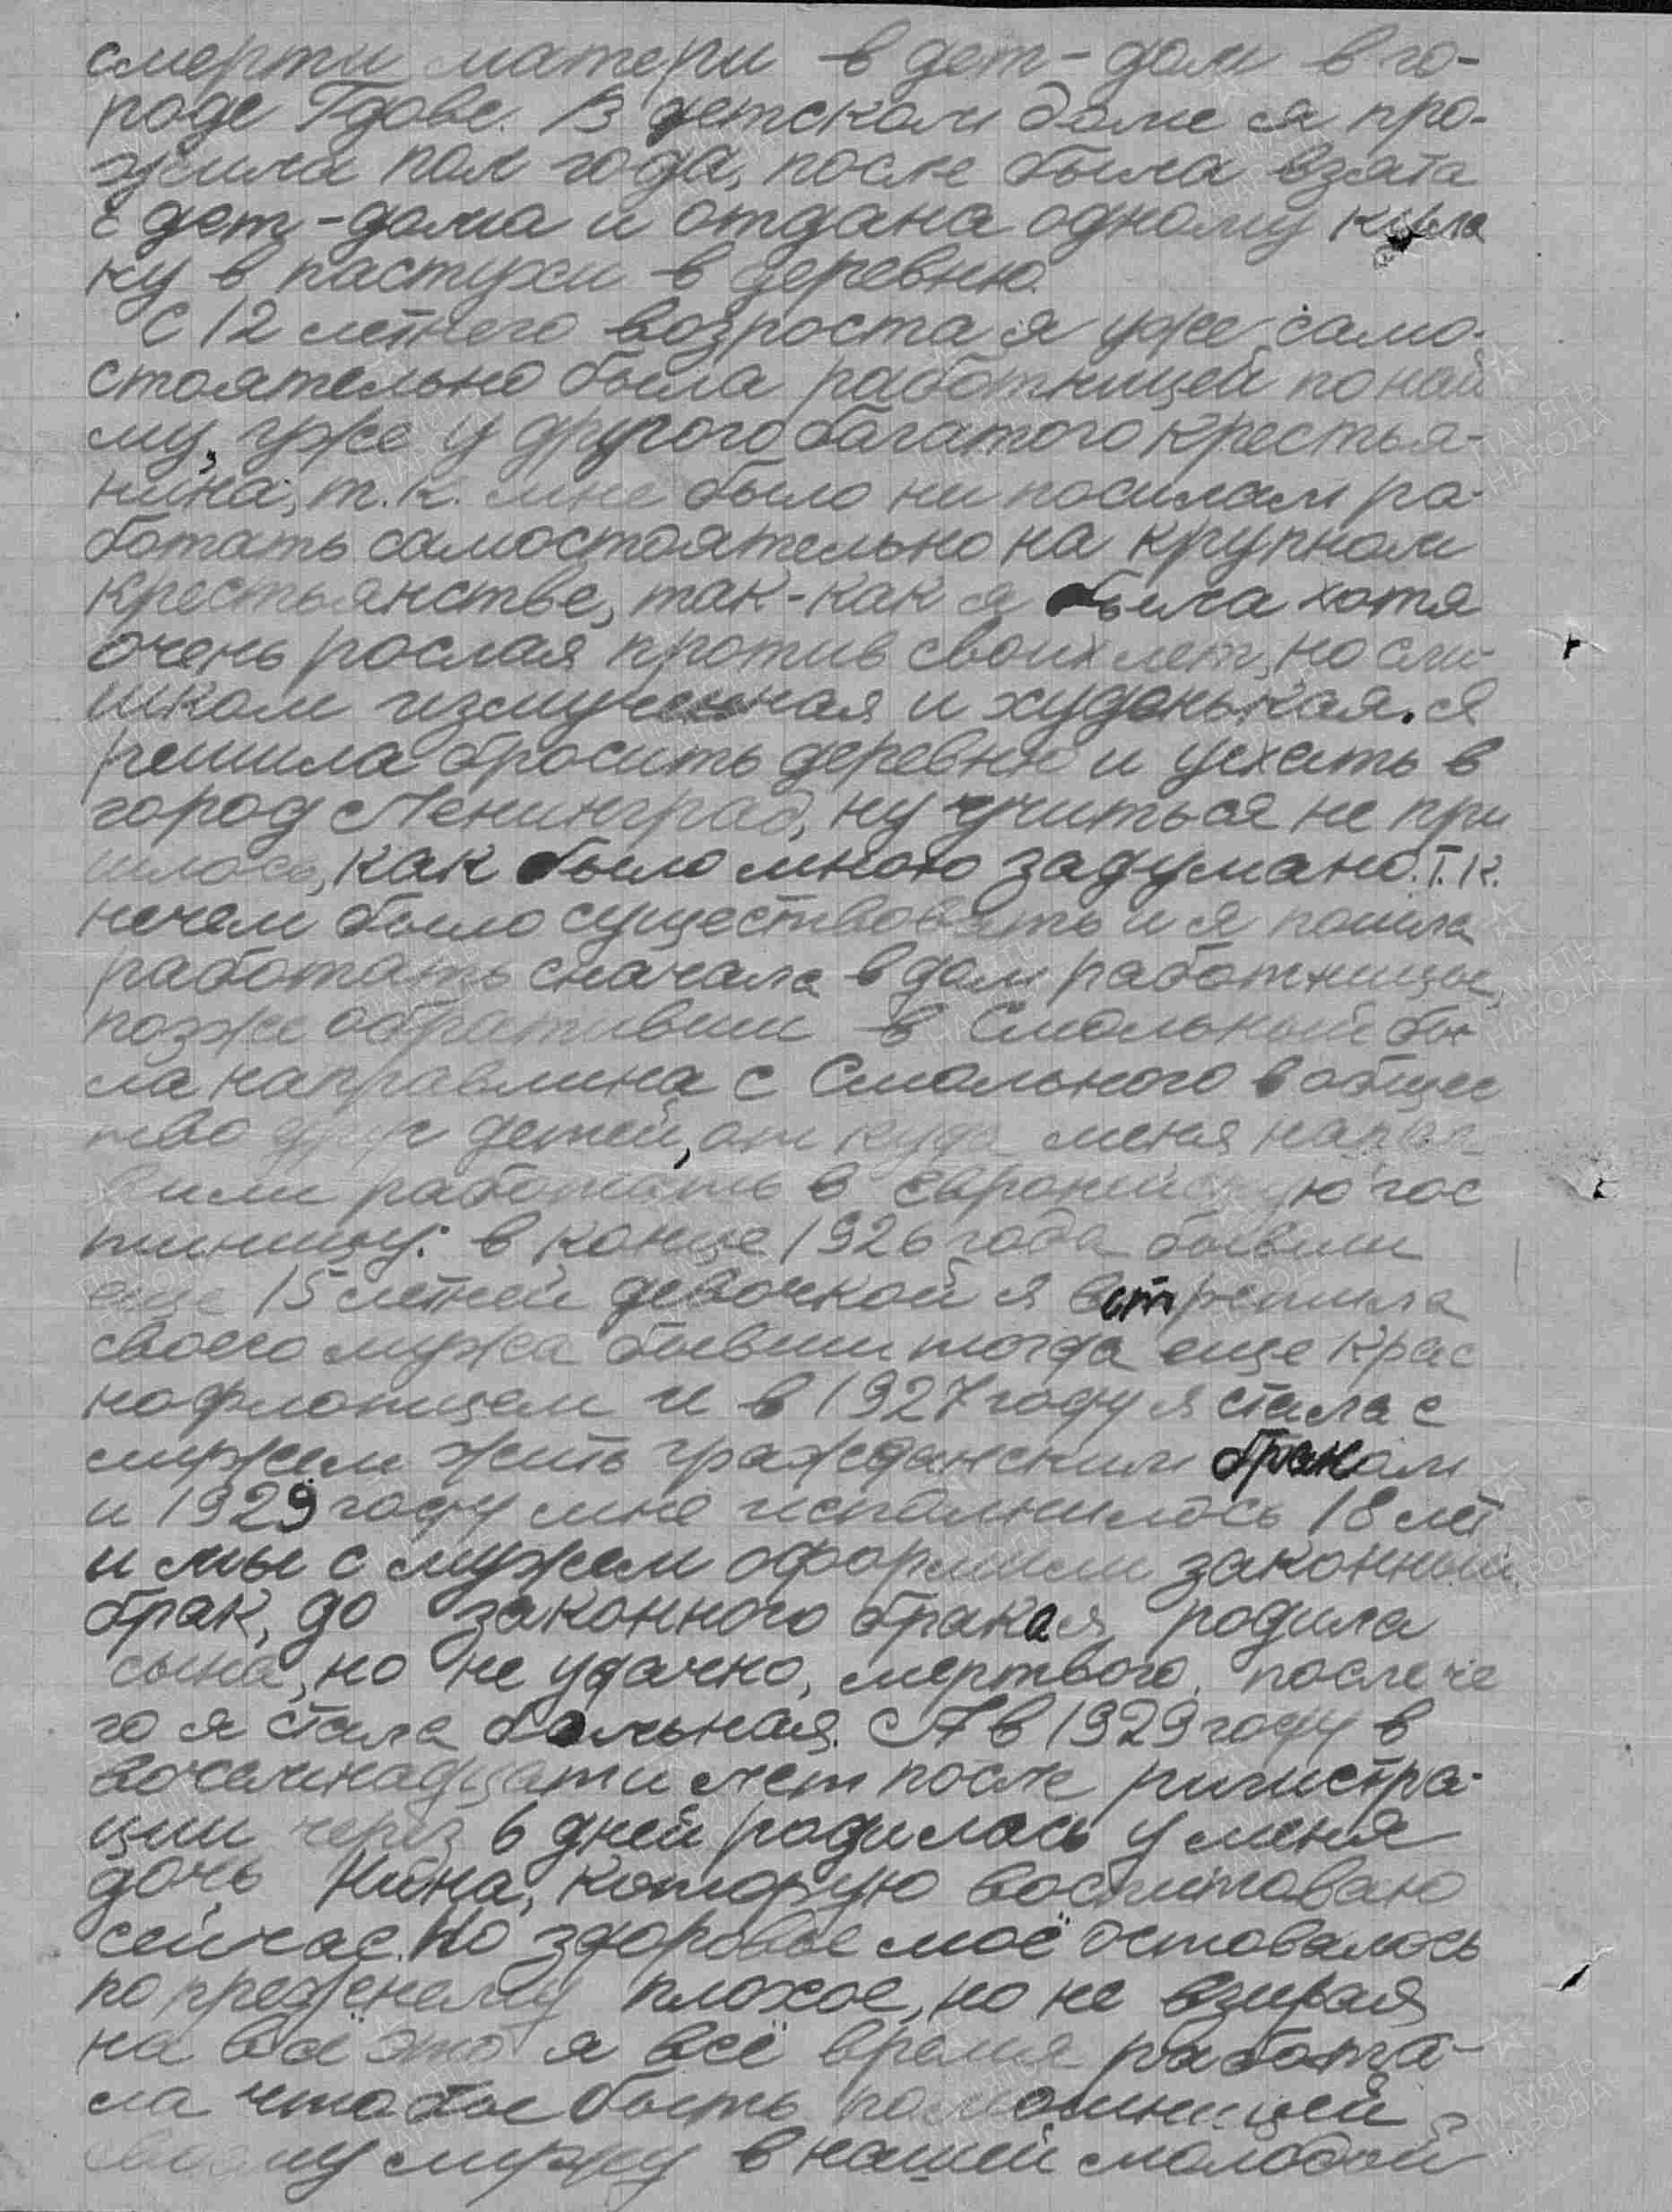 смерти матери в дет-дом в го-
роде Гдове. В детском доме я про-
жила пол года, после была взята
с дет-дома и отдана одному кула
ку в пастухи в деревню.
С 12 летнего возроста я уже само-
стоятельно была работницей по най
му, уже у другого богатого крестья-
нина, т.к. мне было ни посилам ра-
ботать самостоятельно на крупном
крестьянстве, так-как я была хотя
очень рослая против своих лет, но сли-
шком измученная и худенькая. Я
решила бросить деревню и уехать в
город Ленинград, ну учиться не при
шлось, как было мною задумано. Т.К.
нечем было существовать и я пошла
работать сначала в дом работницы,
позже обративши в Смольный бы-
ла направлина с Смольного в общес
тво друг детей, от куда меня напра
вили работать в европейскую гос
тиницу: в конце 1926 года бывши
еще 15 летней девочкой я встретила
своего мужа бывши тогда еще крас
нофлотцем и в 1927 году я стала с
мужем жить гражданским браком
и 1929 году мне исполнилось 18 лет
и мы с мужем оформили законный
брак, до законного брака я родила
сына, но не удачно, мертвого, после че
го я стала больная. А в 1929 году в
восемнадцати лет после ригистра-
ции через 6 дней родилась у меня
дочь Нина, которую воспитоваю
сейчас. Но здоровье моё остовалось
по преженему плохое, но не взирая
на всё это я всё время работа-
ла чтобы быть помошницей
своему мужу в нашей молодой